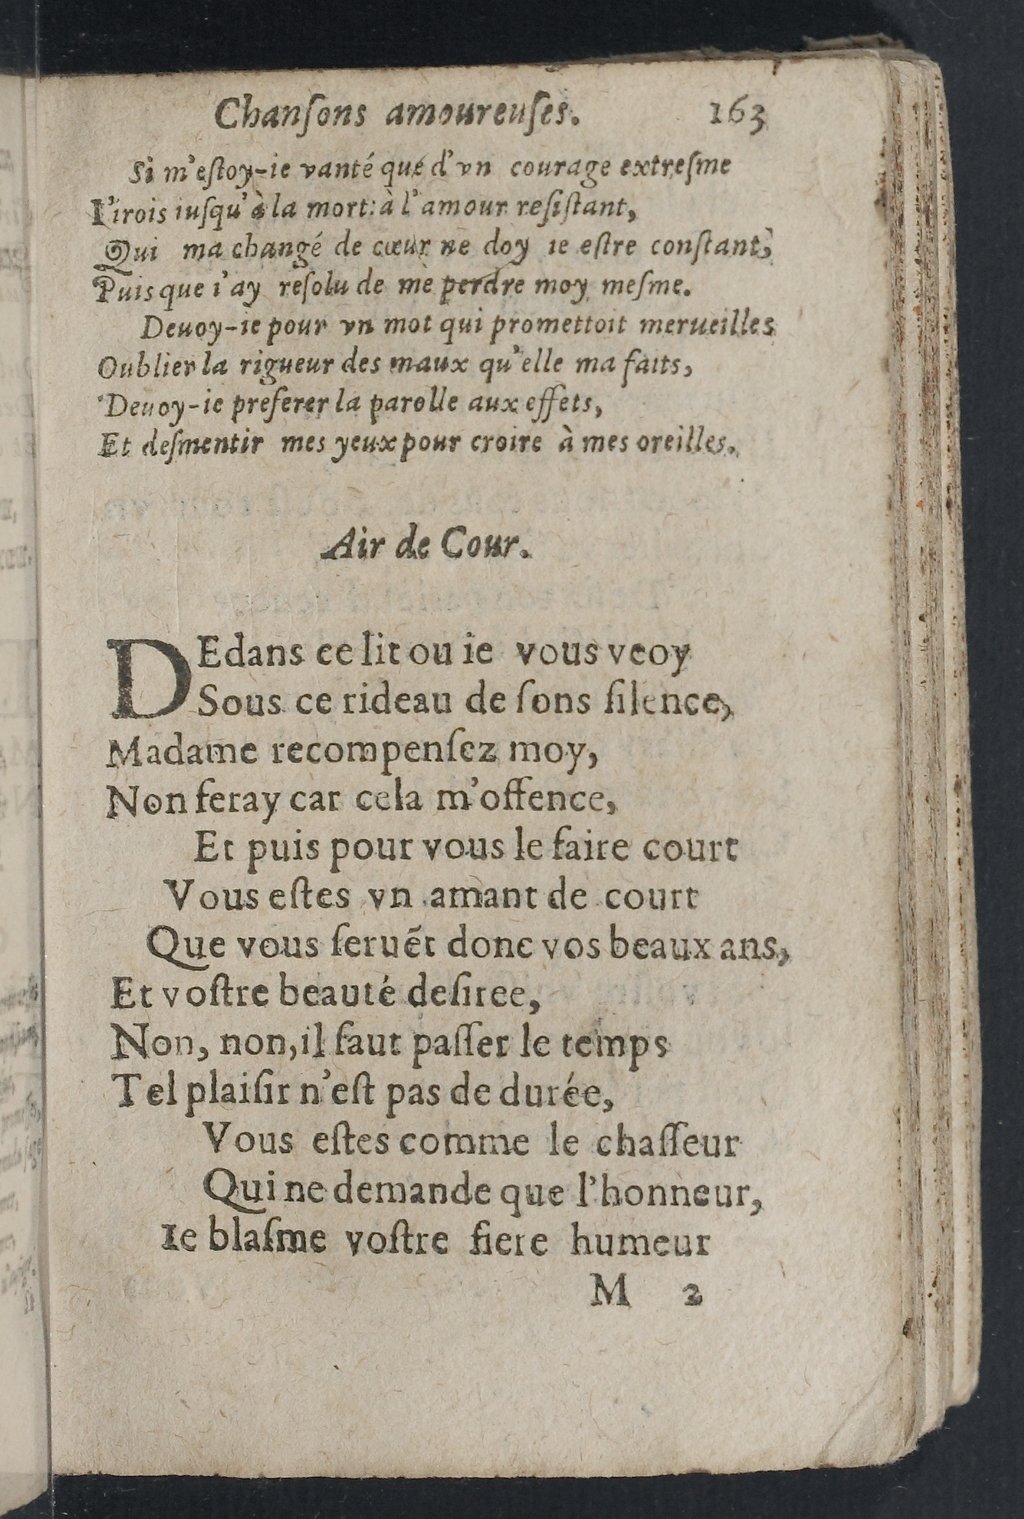 Chanſons amoureuſes. 163
Si m'eſtoy-ie vanté que d'vn courage extreſme
I'irois iuſqu'à la mort: à l'amour reſiſtant,
Qui ma changé de cœur ne doy ie eſtre conſtant,
Puis que i'ay reſolu de me perdre moy meſme.
Deuoy-ie pour vn mot qui promettoit merueilles
Oublier la rigueur des maux qu'elle ma faits,
Deuoy-ie preferer la parolle aux effets,
Et deſmentir mes yeux pour croire à mes oreilles.
Air de Cour.
DEdans ce lit ou ie vous veoy
Sous ce rideau de ſons ſilence,
Madame recompenſez moy,
Non feray car cela m'offence,
Et puis pour vous le faire court
Vous eſtes vn amant de court
Que vous ſeruẽt donc vos beaux ans,
Et voſtre beauté deſiree,
Non, non, il faut paſſer le temps
Tel plaiſir n'eſt pas de durée,
Vous eſtes comme le chaſſeur
Qui ne demande que l'honneur,
Ie blaſme voſtre fiere humeur
M 2